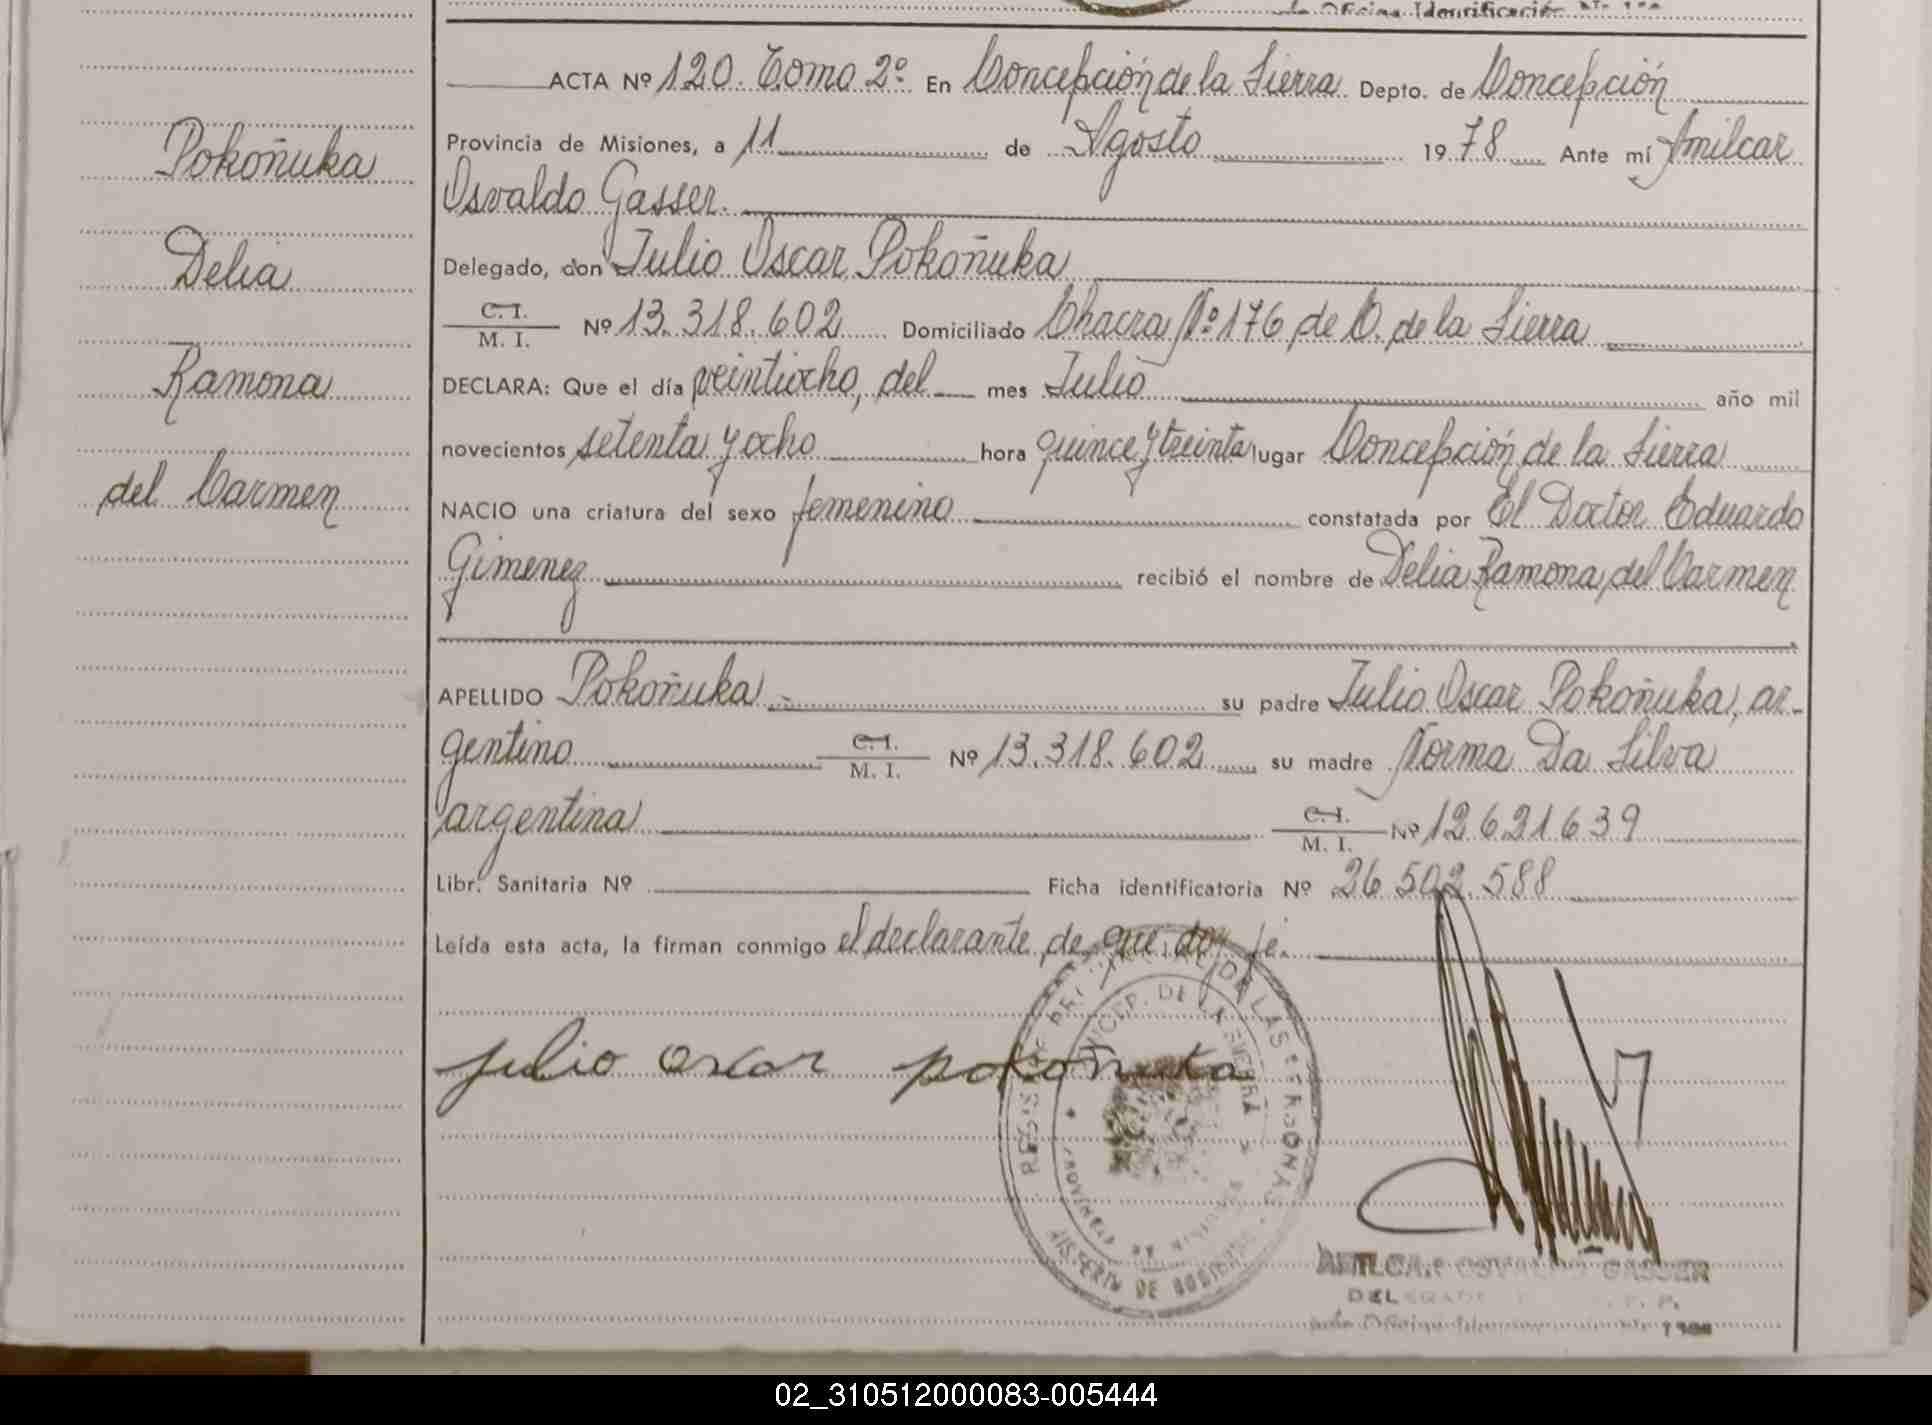 Oficina Identificación
ACTA Nº 120. Tomo 2º En Concepción de la Sierra Depto. de Concepción
Provincia de Misiones, a 11 de Agosto 1978 Ante mí Amilcar
Osvaldo Gasser.
Delegado, don Julio Oscar Pokoñuka
C. I.
M. I. Nº 13.318.602 Domiciliado Chacra Nº 176 de C. de la Sierra
DECLARA: Que el día veintiocho, del mes Julio año mil
novecientos setenta y ocho hora quince y treinta lugar Concepción de la Sierra
NACIO una criatura del sexo femenino constatada por El Doctor Eduardo
Gimenez recibió el nombre de Delia Ramona del Carmen
APELLIDO Pokoñuka su padre Julio Oscar Pokoñuka, ar-
gentino C. I. M. I. Nº 13.318.602 su madre Norma Da Silva
argentina C. I. M. I. Nº 12.621.639
Libr. Sanitaria Nº Ficha identificatoria Nº 26.502.588
Leída esta acta, la firman conmigo el declarante de que doy fé.
julio oscar pokoñuka
Pokoñuka
Delia
Ramona
del Carmen
REGISTRO PROVINCIAL DE LAS PERSONAS
CONCEP. DE LA SIERRA
PROVINCIA DE MISIONES
AMILCAR OSVALDO GASSER
DELEGADO
02_310512000083-005444